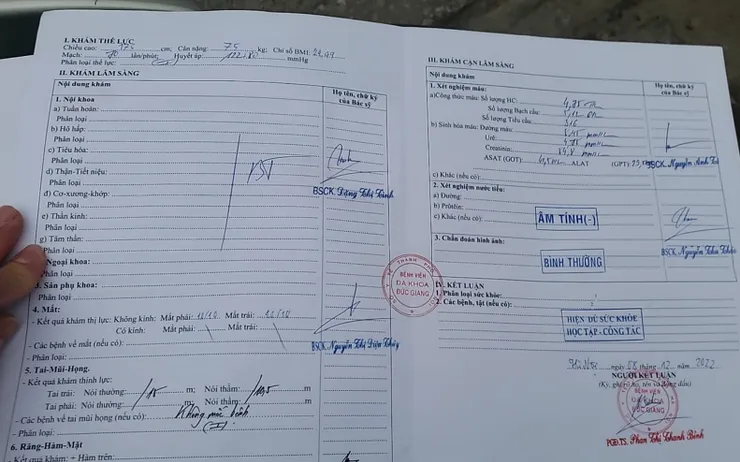 I. KHÁM THỂ LỰC
Chiều cao: 175 cm; Cân nặng: 75 kg; Chỉ số BMI: 24,49
Mạch: 80 lần/phút; Huyết áp: 122/80 mmHg
Phân loại thể lực:
II. KHÁM LÂM SÀNG
Nội dung khám
Họ tên, chữ ký của Bác sỹ
1. Nội khoa
a) Tuần hoàn:
Phân loại
b) Hô hấp:
Phân loại
c) Tiêu hóa:
Phân loại
d) Thận-Tiết niệu:
Phân loại
đ) Cơ-xương-khớp:
Phân loại
e) Thần kinh:
Phân loại
g) Tâm thần:
Phân loại
BT
BSCK. Đặng Thị
2. Ngoại khoa:
Phân loại
3. Sản phụ khoa:
Phân loại
4. Mắt:
- Kết quả khám thị lực: Không kính: Mắt phải: 10/10 Mắt trái: 10/10
Có kính: Mắt phải: \ Mắt trái: \
- Các bệnh về mắt (nếu có):
- Phân loại:
BSCK. Nguyễn Thị Diệu Thúy
5. Tai-Mũi-Họng.
- Kết quả khám thính lực:
Tai trái: Nói thường: 5 m; Nói thầm: 0,5 m
Tai phải: Nói thường: m; Nói thầm: m
- Các bệnh về tai mũi họng (nếu có): Không mắc bệnh
- Phân loại: (I)
6. Răng-Hàm-Mặt
- Kết quả khám: + Hàm trên:
III. KHÁM CẬN LÂM SÀNG
Nội dung khám
Họ tên, chữ ký của Bác sỹ
1. Xét nghiệm máu:
a) Công thức máu: Số lượng HC:
Số lượng Bạch cầu:
Số lượng Tiểu cầu: 316
b) Sinh hóa máu: Đường máu:
Urê:
Creatinin:
ASAT (GOT): ALAT (GPT):
BSCK. Nguyễn Anh
c) Khác (nếu có):
2. Xét nghiệm nước tiểu:
a) Đường:
b) Prôtêin:
c) Khác (nếu có):
ÂM TÍNH(-)
BSCK. Nguyễn Thu
3. Chẩn đoán hình ảnh:
BÌNH THƯỜNG
BỆNH VIỆN
ĐA KHOA
ĐỨC GIANG
IV. KẾT LUẬN
1. Phân loại sức khỏe:
2. Các bệnh, tật (nếu có):
HIỆN ĐỦ SỨC KHỎE
HỌC TẬP - CÔNG TÁC
Hà Nội ngày 08 tháng 12 năm 2022
NGƯỜI KẾT LUẬN
(Ký, ghi rõ họ, tên và đóng dấu)
BỆNH VIỆN
ĐA KHOA
ĐỨC GIANG
PGĐ.TS. Phan Thị Thanh Bình